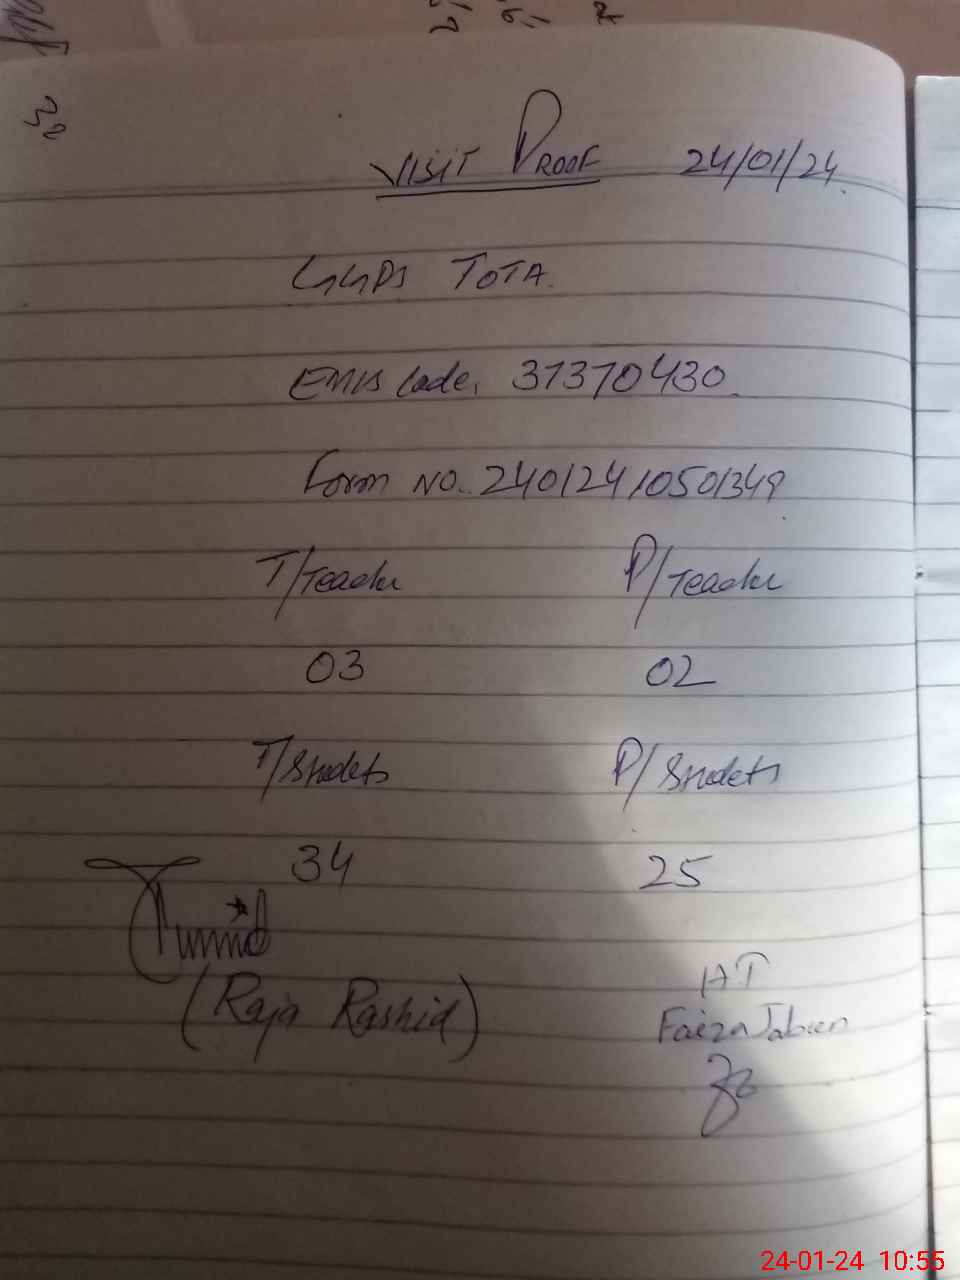 VISIT PROOF 24/01/24
GGPS TOTA.
EMIS Code. 37370430
Form NO. 24012410501349
T/Teacher P/Teacher
03 02
T/Students P/Students
34 25
(Raja Rashid)
HT
Faiza Jabeen
24-01-24 10:55